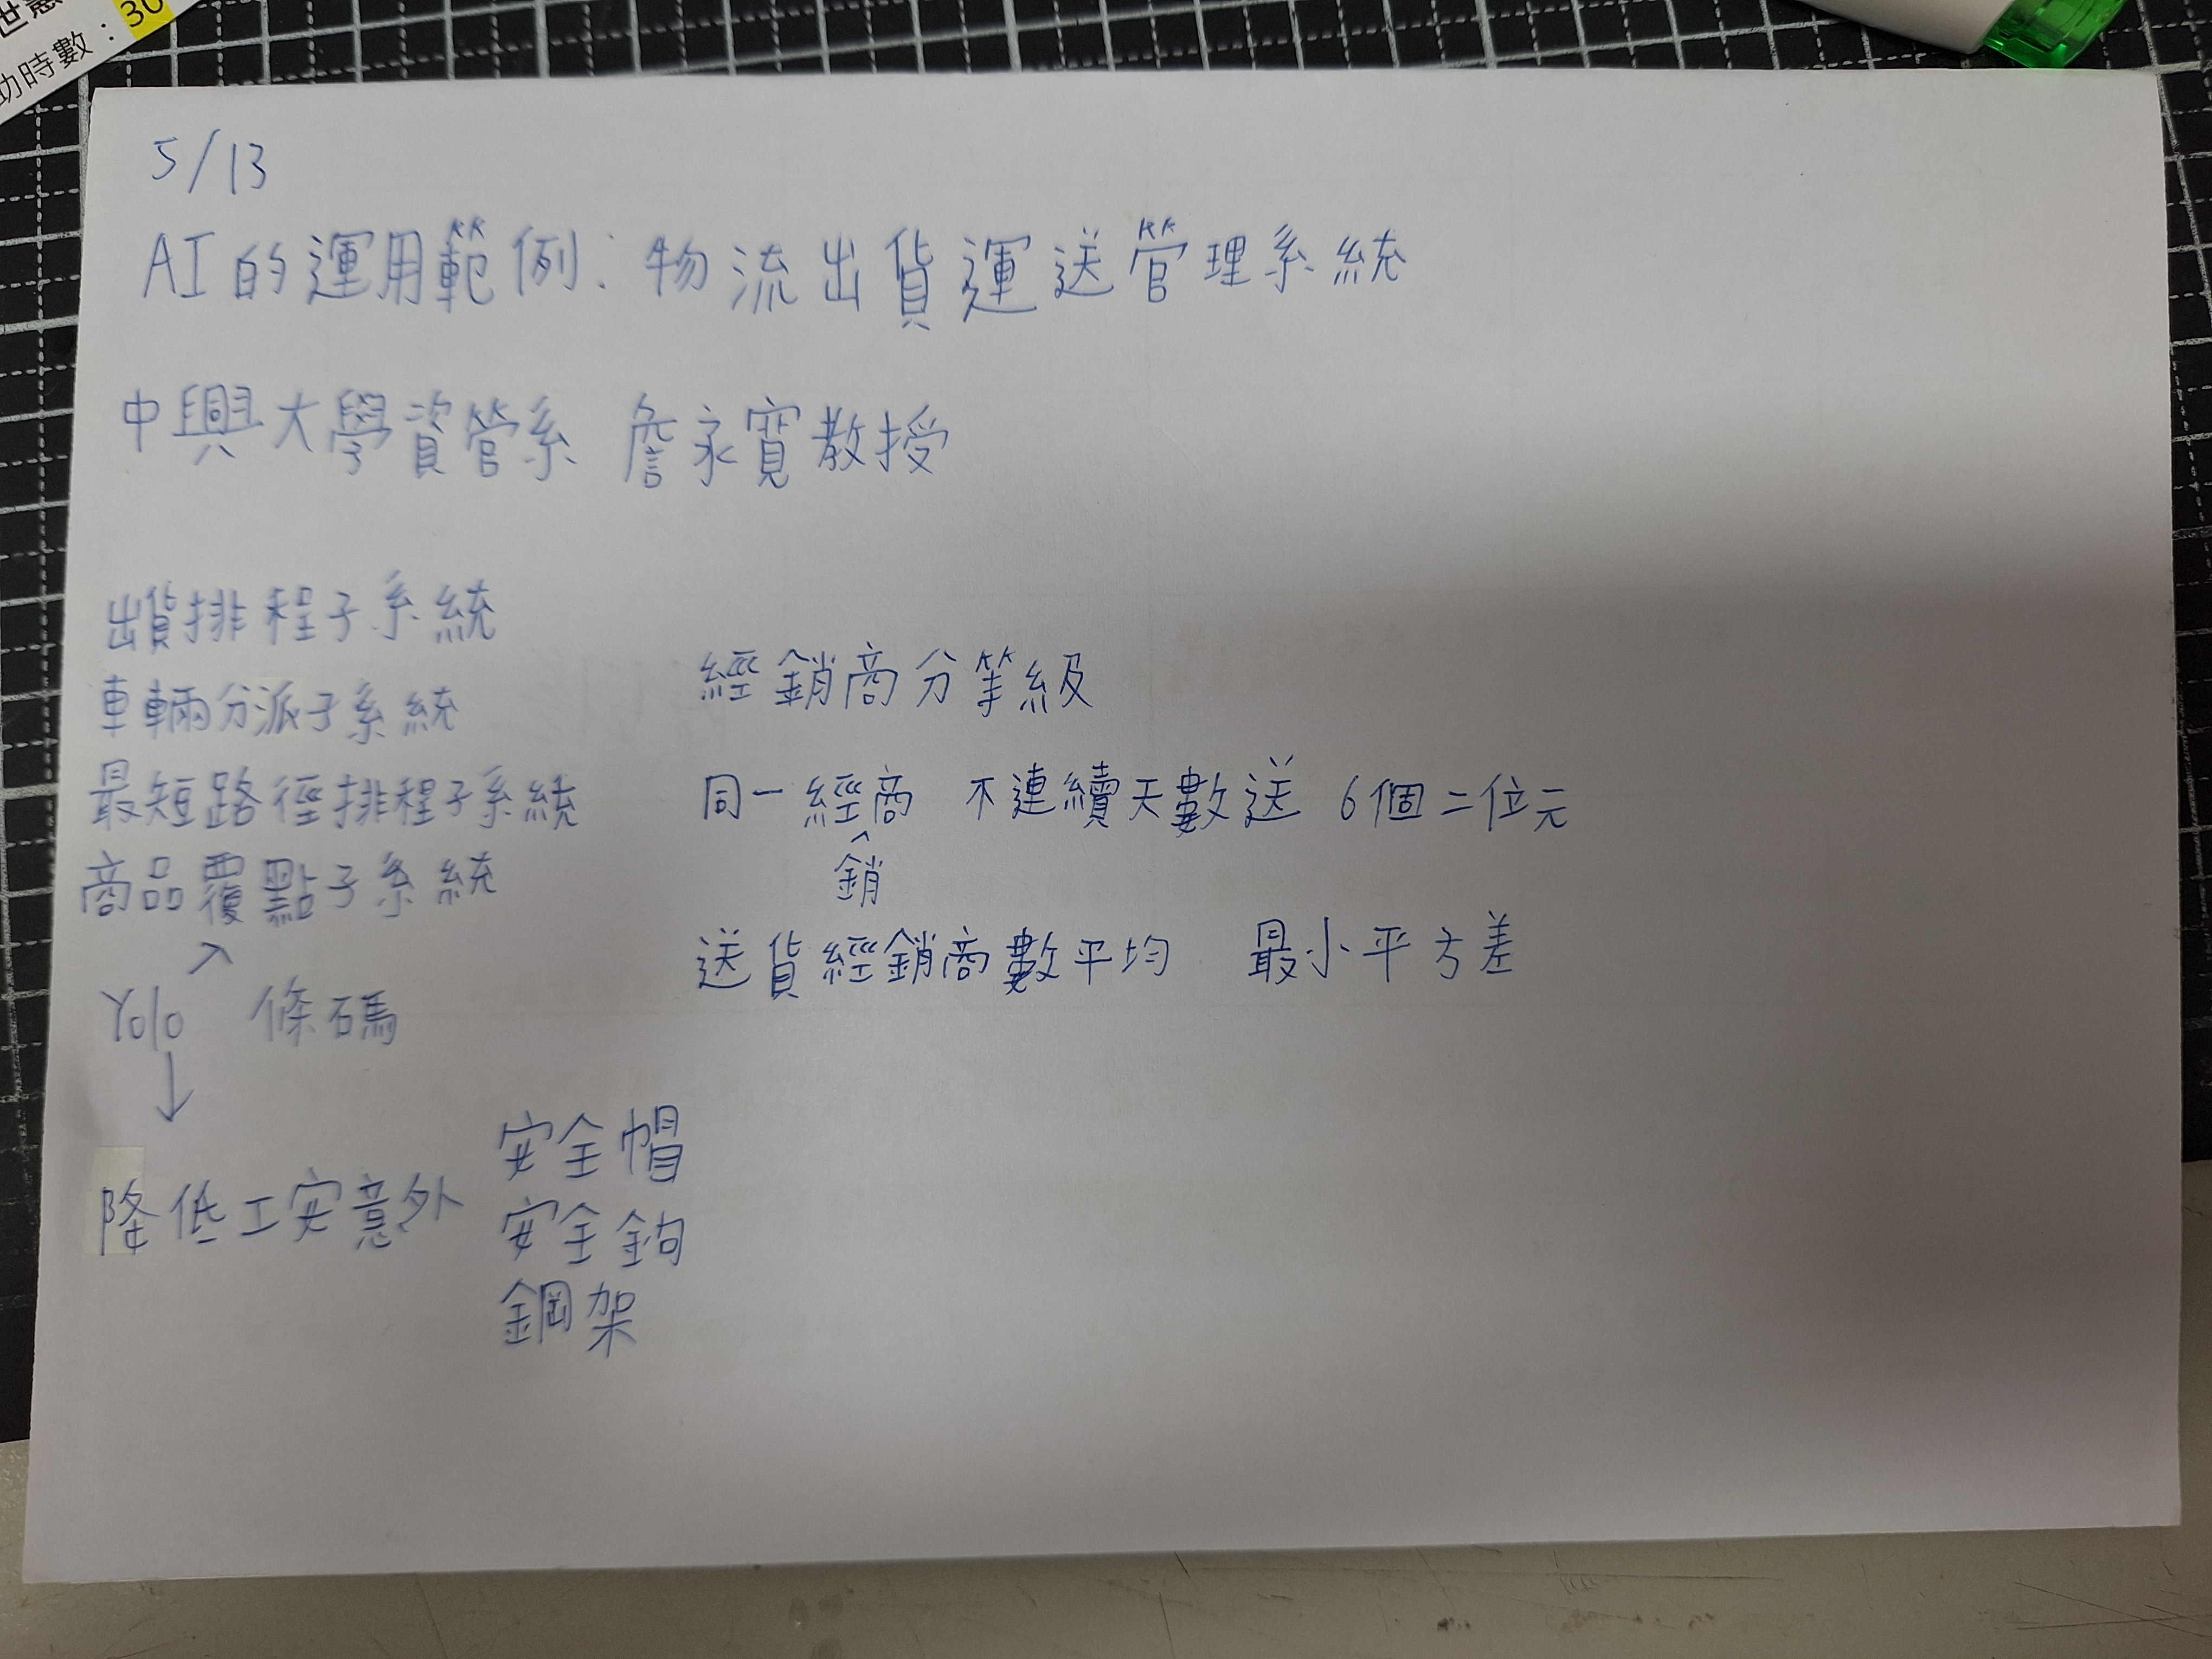 5/13
AI的運用範例：物流出貨運送管理系統
中興大學資管系 詹永寬教授
出貨排程子系統
車輛分派子系統
最短路徑排程子系統
商品覆點子系統
Yolo 條碼
降低工安意外
安全帽
安全鉤
鋼架
經銷商分等級
同一經銷商 不連續天數送 6個二位元
送貨經銷商數平均 最小平方差
功時數：30